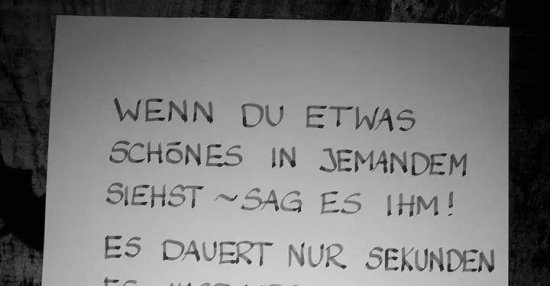 WENN DU ETWAS
SCHÖNES IN JEMANDEM
SIEHST ~ SAG ES IHM!
ES DAUERT NUR SEKUNDEN